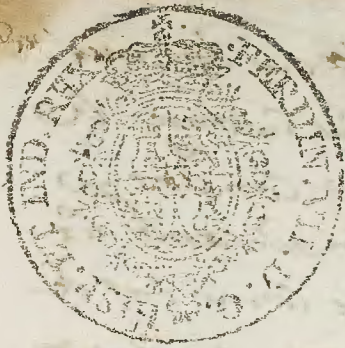 FERDIN. VII. D. G. HISP. ET IND. REX